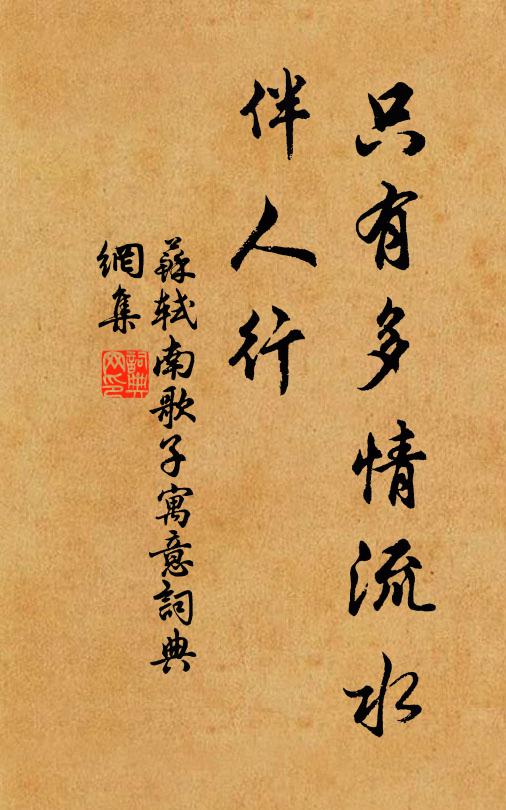 只有多情流水
伴人行
蘇軾南歌子寓意詞典
網集
詞典
网印